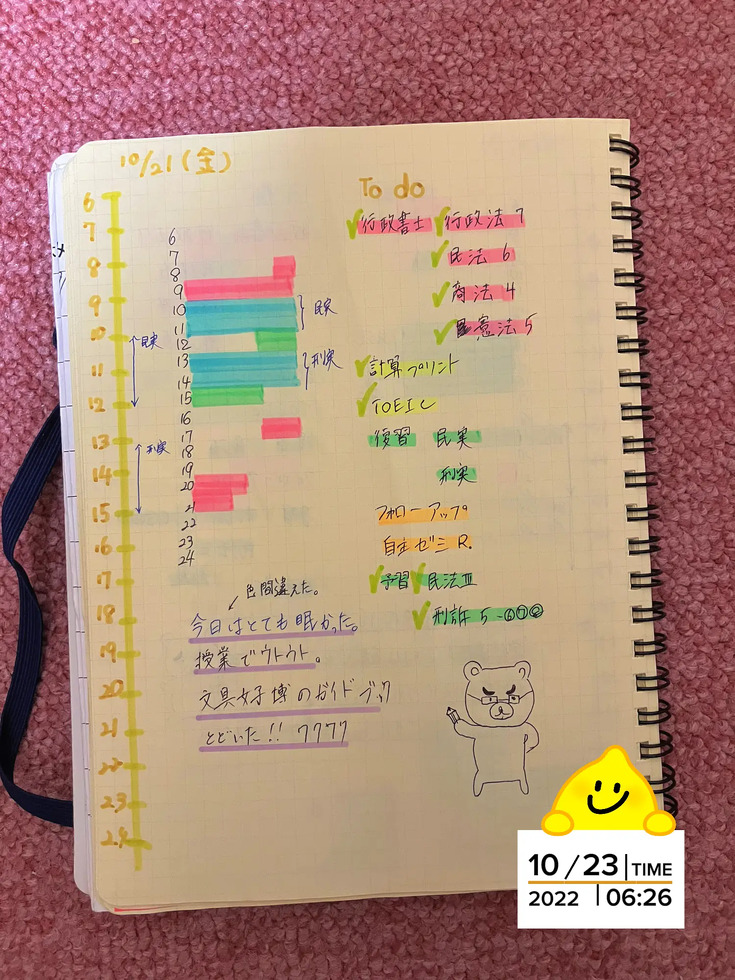 10/21(金)
6
7
8
9
10
11
12
13
14
15
16
17
18
19
20
21
22
23
24
民実
刑実
6
7
8
9
10
11
12
13
14
15
16
17
18
19
20
21
22
23
24
民実
刑実
To do
行政書士 行政法 7
民法 6
商法 4
憲法 5
計算プリント
TOEIC
復習 民実
刑実
フォローアップ
自主ゼミ R.
予習 民法Ⅲ
刑訴 5-⑥⑦⑧
色間違えた。
今日はとても眠かった。
授業でウトウト。
文具女子博のガイドブック
とどいた!! ワワワワ
10/23 TIME
2022 06:26